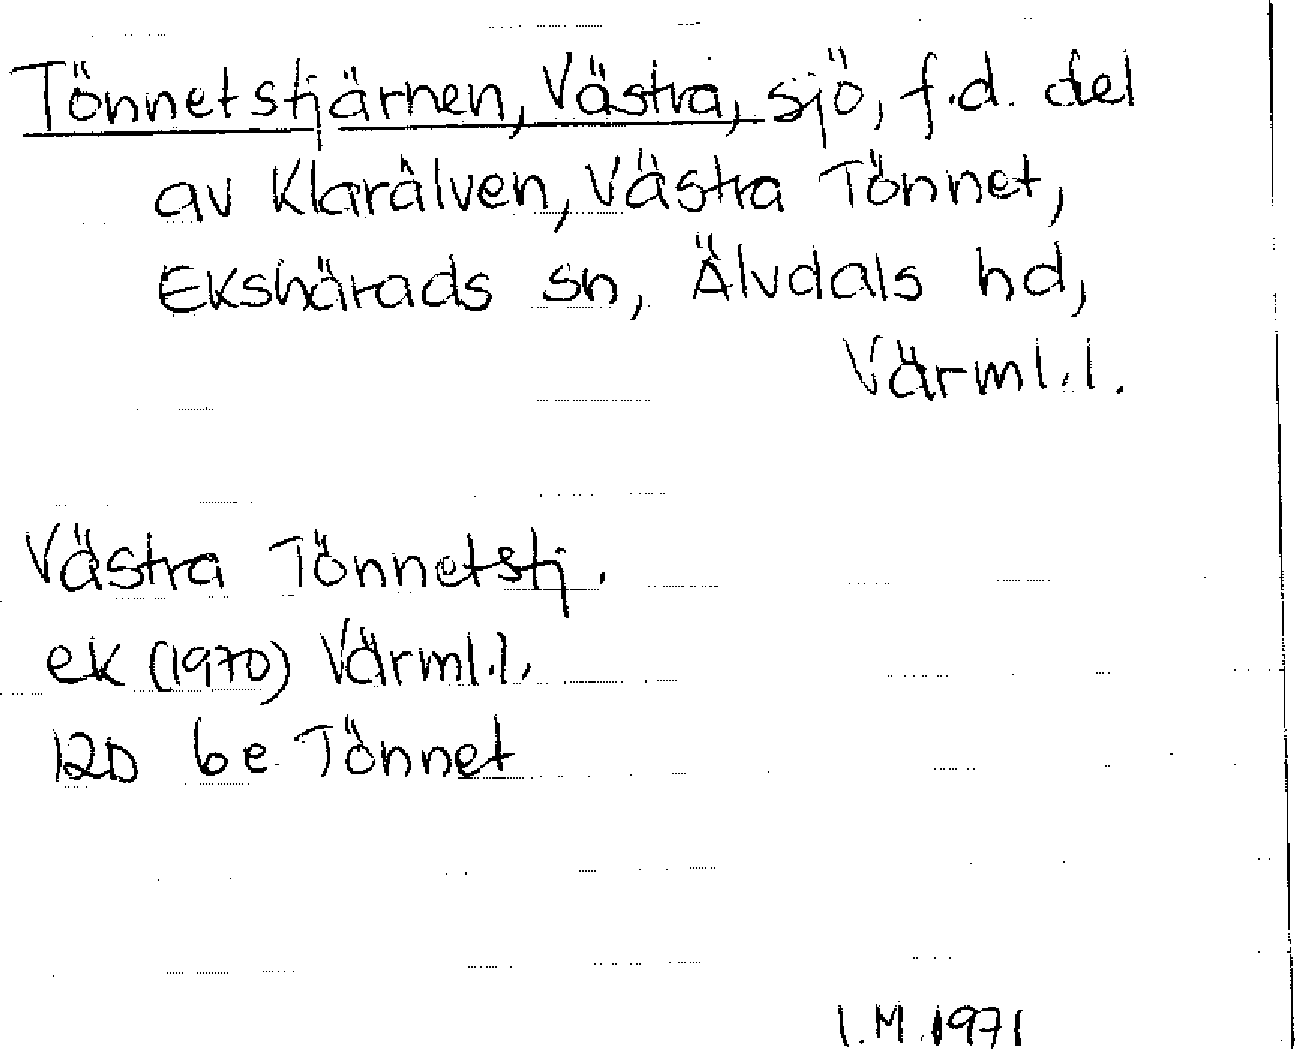 Tönnetstjärnen, Västra, sjö, f.d. del
av Klarälven, Västra Tönnet,
Ekshärads sn, Älvdals hd,
Värml.l.
Västra Tönnetstj.
ek (1970) Värml.l.
12D 6e Tönnet
I.M. 1971